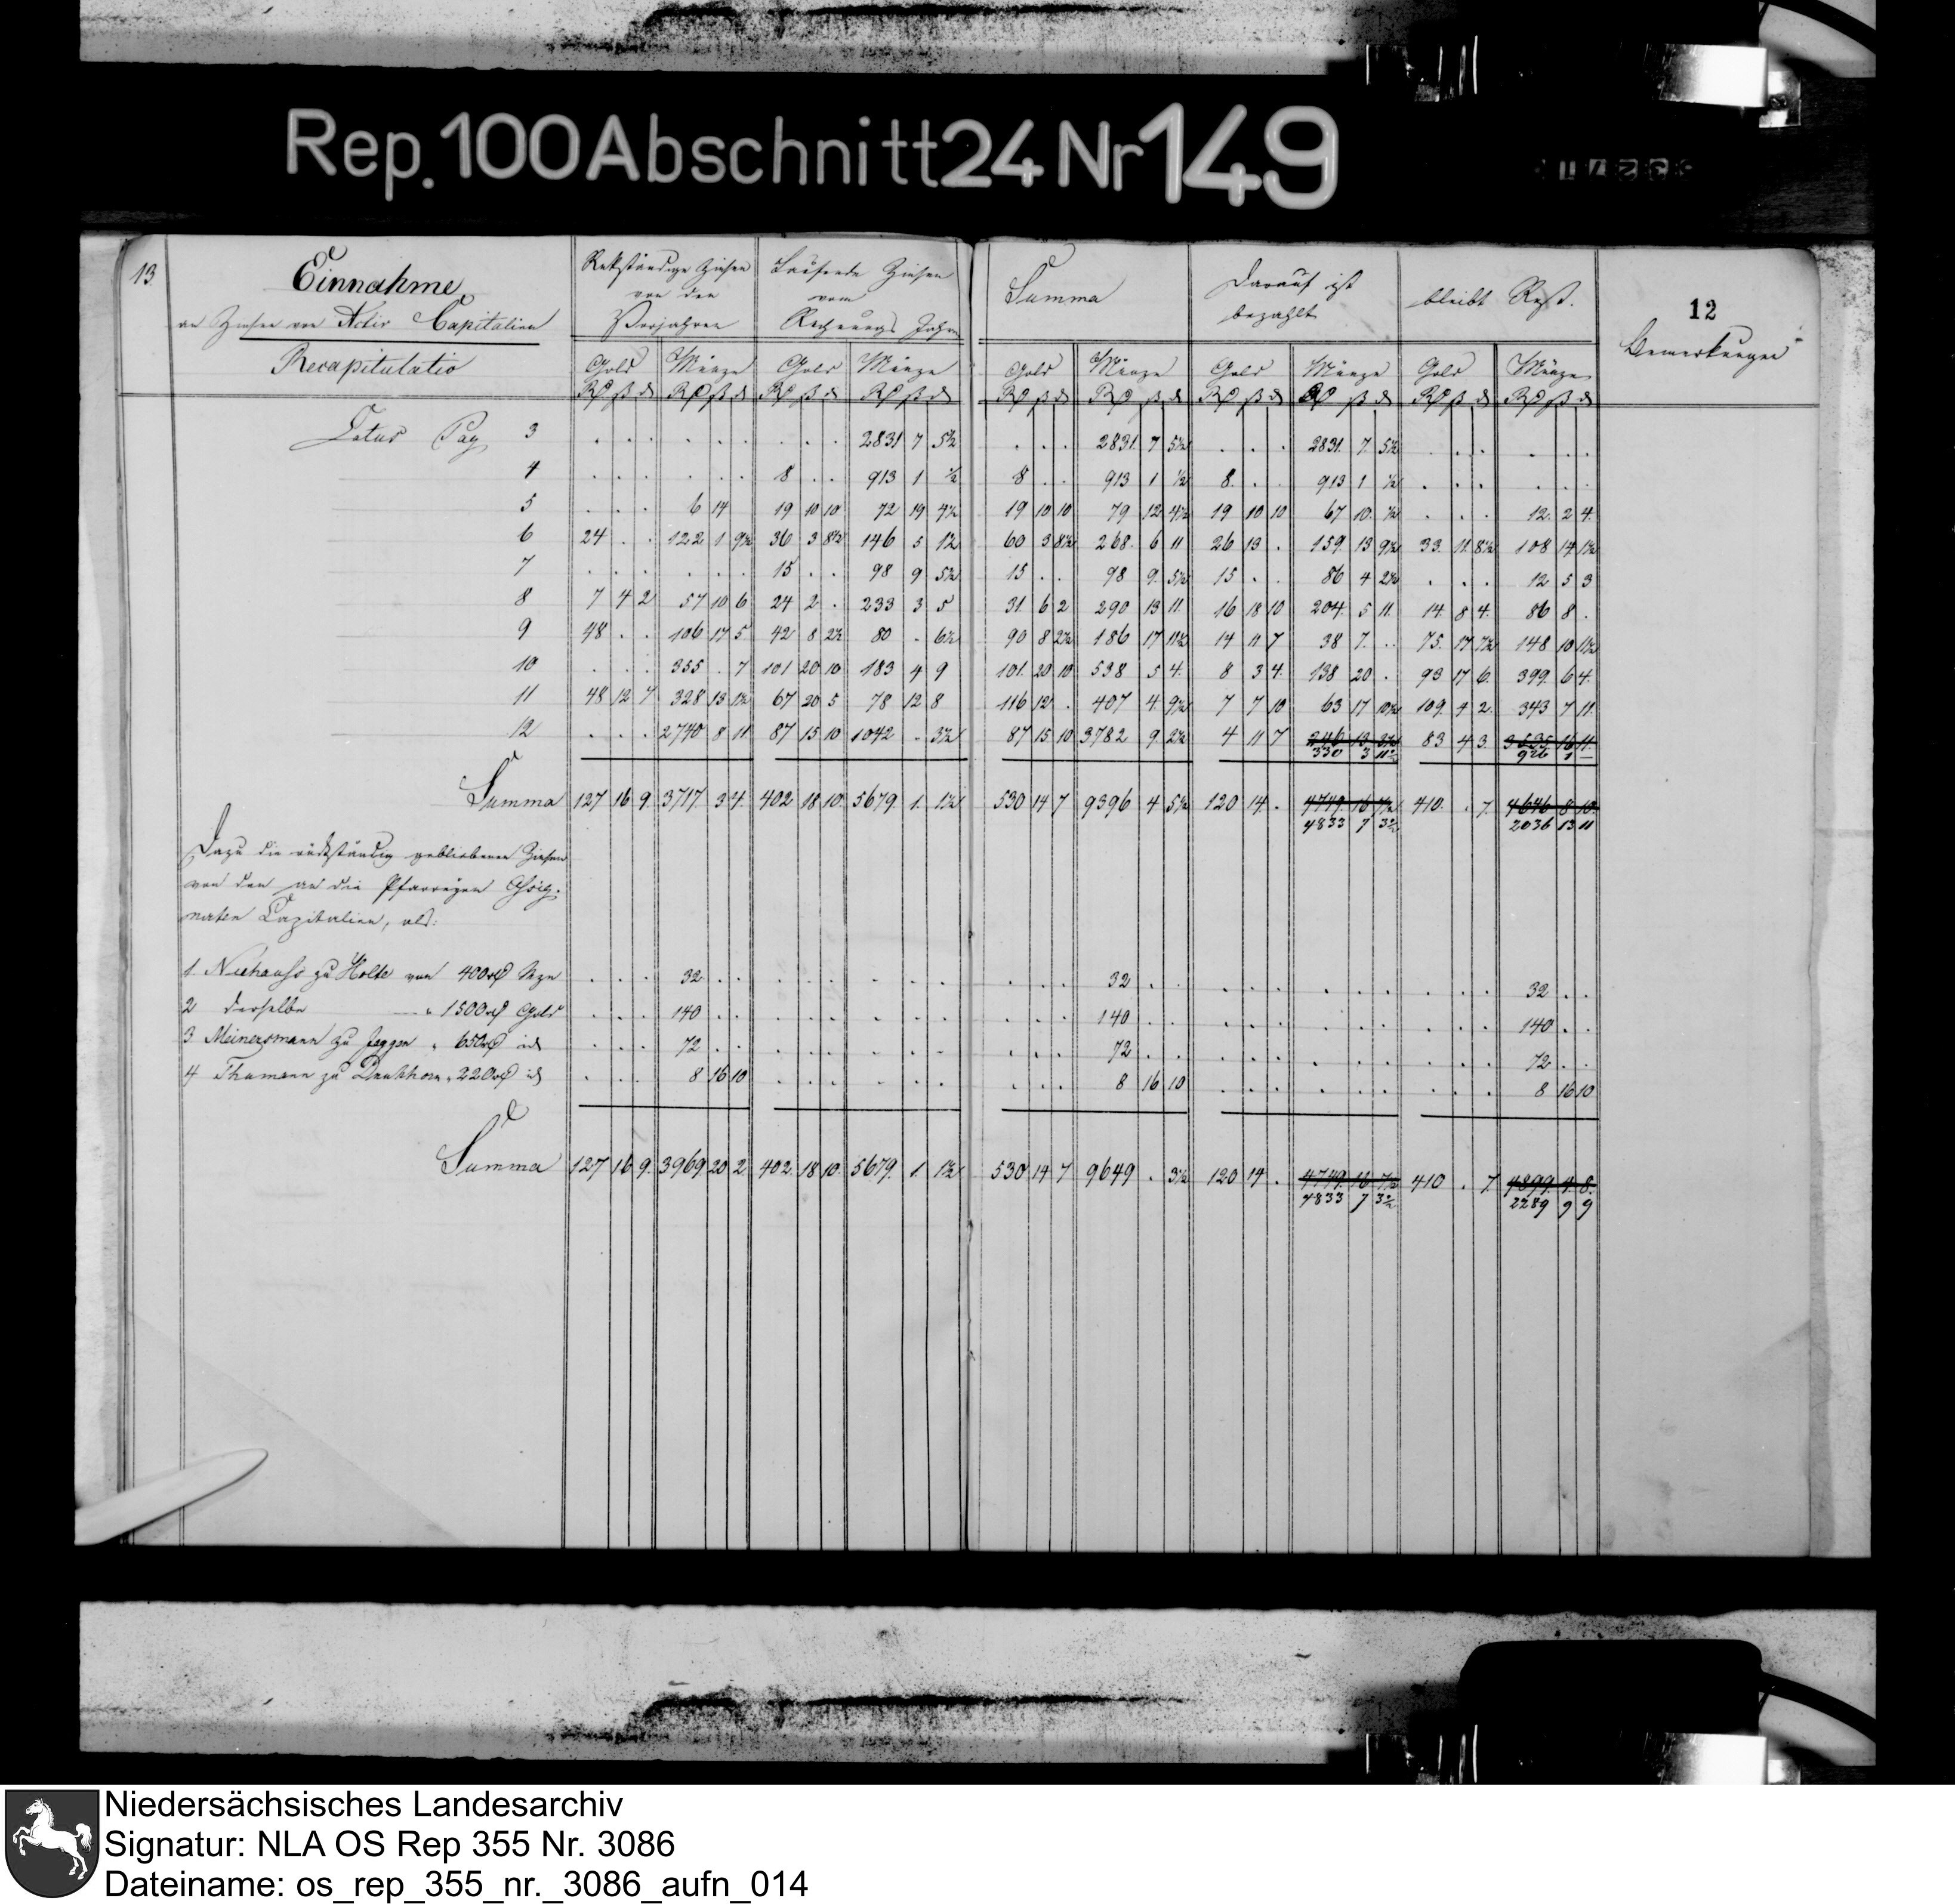 Rep. 100 Abschnitt 24 Nr 149
13.
Einnahme
an Zinsen von Activ Capitalien
Recapitulatio
Rükständige Zinsen von den Vorjahren
Laufende Zinsen vom Rechnungs Jahre
Summa
Darauf ist bezahlt
bleibt Rest.
12
Bemerkungen
Gold Münze Gold Münze Gold Münze Gold Münze Gold Münze
Latus Pag 3 . . . . . . . . . 2831 7 5½ . . . 2831. 7 5½ . . . 2831. 7. 5½ . . . . . .
4 . . . . . . 8 . . 913 1 ½ 8 . . 913 1 ½ 8. . . 913 1 ½ . . . . . .
5 . . . 6 14 19 10 10 72 19 4½ 19 10 10 79 12 4½ 19 10 10 67 10. ½ . . . 12. 2 4.
6 24 . . 122 1 9½ 36 3 8½ 146 5 1½ 60 3 8½ 268. 6 11 26 13 . 159. 13 9½ 33. 11. 8½ 108 14 1½
7 . . . . . . 15 . . 98 9 5½ 15 . . 98 9. 5½ 15 . . 86 4 2½ . . . 12 5 3
8 7 4 2 57 10 6 24 2 . 233 3 5 31. 6 2 290 13 11. 16 18 10 204. 5 11. 14. 8 4. 86 8 .
9 48 . . 106 17 5 42 8 2½ 80 . 6½ 90 8 2½ 186 17 11½ 14 11 7 38 7. . 75. 17 7½ 148 10 11½
10 . . . 355 . 7 101 20 10 183 4 9 101. 20 10 538 5 4. 8 3 4. 138 20 . 93 17 6. 399. 6 4.
11 48 12 7 328 13 1½ 67 20 5 78 12 8 116 12 . 407 4. 9½ 7 7 10 63 17 10½ 109. 4 2. 343 7 11.
12 . . . 2740 8 11 87 15 10 1042 . 3½ 87 15 10 3782 9 2½ 4 11 7 246 12 3½ 83 4 3. 3535 16 11.
330 3 11½ 926 1 —
Summa 127 16 9. 3717. 3 4. 402 18 10. 5679. 1. 1½ 530 14 7 9396 4 5½ 120 14. . 4749. 16 7½ 410. . 7. 4646 8 10.
4833 7 3½ 2036 13 11
Dazu die rückständig gebliebenen Zinsen
von den an die Pfarreyen Assig-
nirten Capitalien, als:
1. Niehauss zu Holte von 400 Mze . . . 32 . . . . . . . . . . . 32 . . . . . . . . . . . 32 . .
2 derselbe " 1500 Gold . . . 140 . . . . . . . . . . . 140 . . . . . . . . . . . 140 . .
3. Meinersmann zu Jeggen " 650 . . . 72 . . . . . . . . . . . 72 . . . . . . . . . . . 72 . .
4 Thumann zu " 220 . . . 8 16 10 . . . . . . . . . 8 16 10 . . . . . . . . . 8 16 10
Summa 127 16 9. 3969 20 2. 402. 18 10. 5679. 1. 1½ 530 14 7 9649 . 3½ 120 14 . 4749. 16 7½ 410 . 7. 4899. 4. 8.
4833 7 3½ 2289 9 9
Niedersächsisches Landesarchiv
Signatur: NLA OS Rep 355 Nr. 3086
Dateiname: os_rep_355_nr._3086_aufn_014